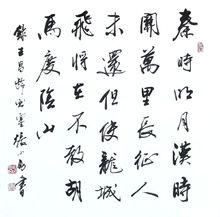 秦時明月漢時
關萬里長征人
未還但使龍城
飛將在不教胡
馬度陰山
錄王昌齡出塞 張 書